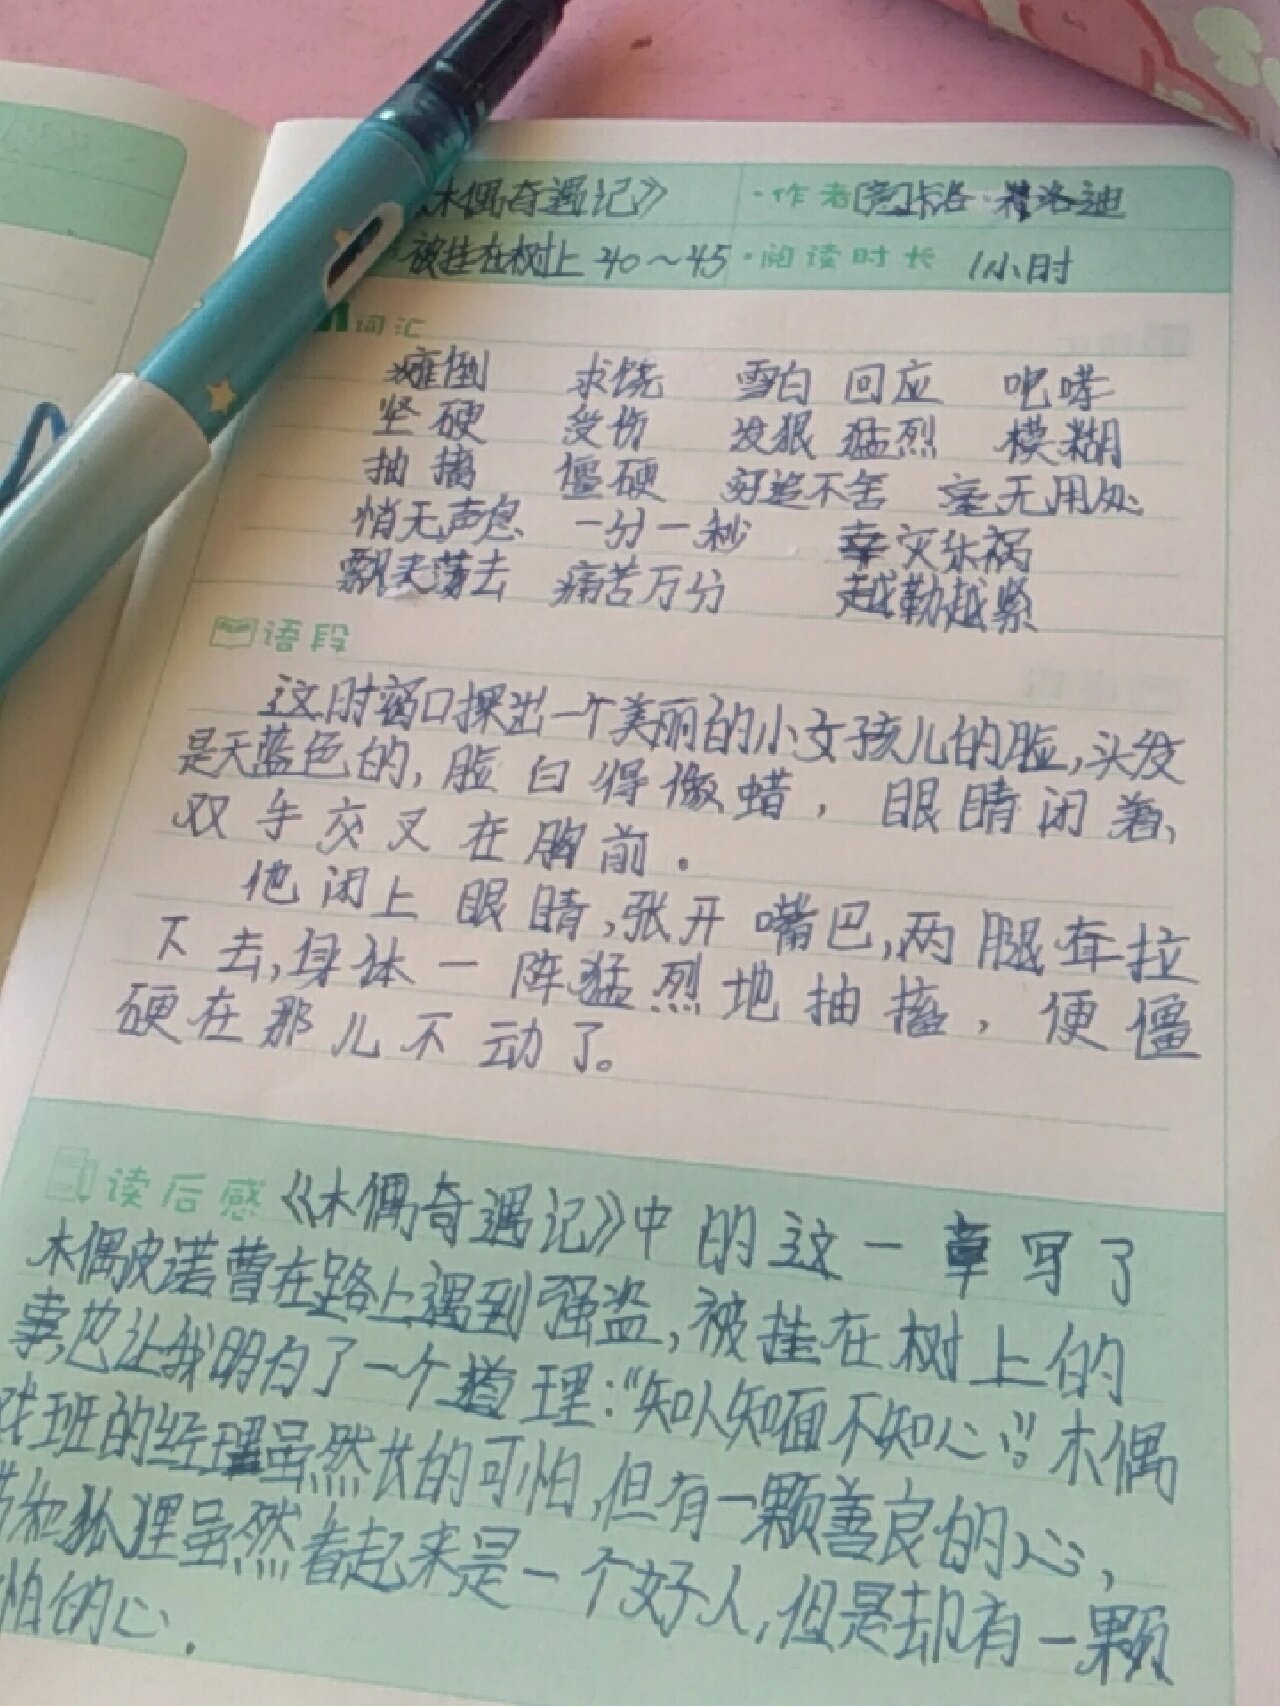 木偶奇遇记》 ·作者 [意]卡洛·科洛迪
被挂在树上 40～45 ·阅读时长 1小时
词汇
瘫倒 求饶 雪白 回应 咆哮
坚硬 受伤 发狠 猛烈 模糊
抽搐 僵硬 穷追不舍 毫无用处
悄无声息 一分一秒 幸灾乐祸
飘来荡去 痛苦万分 越勒越紧
语段
这时窗口探出一个美丽的小女孩儿的脸,头发
是天蓝色的,脸白得像蜡,眼睛闭着,
双手交叉在胸前.
他闭上眼睛,张开嘴巴,两腿耷拉
下去,身体一阵猛烈地抽搐,便僵
硬在那儿不动了。
读后感 《木偶奇遇记》中的这一章写了
木偶皮诺曹在路上遇到强盗,被挂在树上的
事,也让我明白了一个道理:“知人知面不知心。”木偶
戏班的经理虽然长的可怕,但有一颗善良的心,
和狐狸虽然看起来是一个好人,但是却有一颗
怕的心.